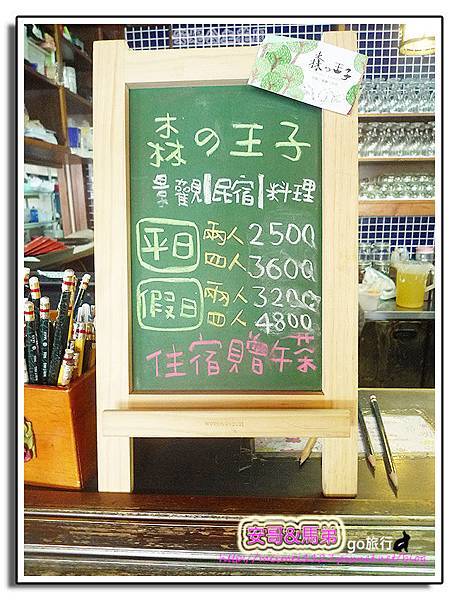 森の王子
森の王子
景觀|民宿|料理
平日 兩人 2500
四人 3600
假日 兩人 3200
四人 4800
住宿贈午茶
安哥&馬弟 go旅行